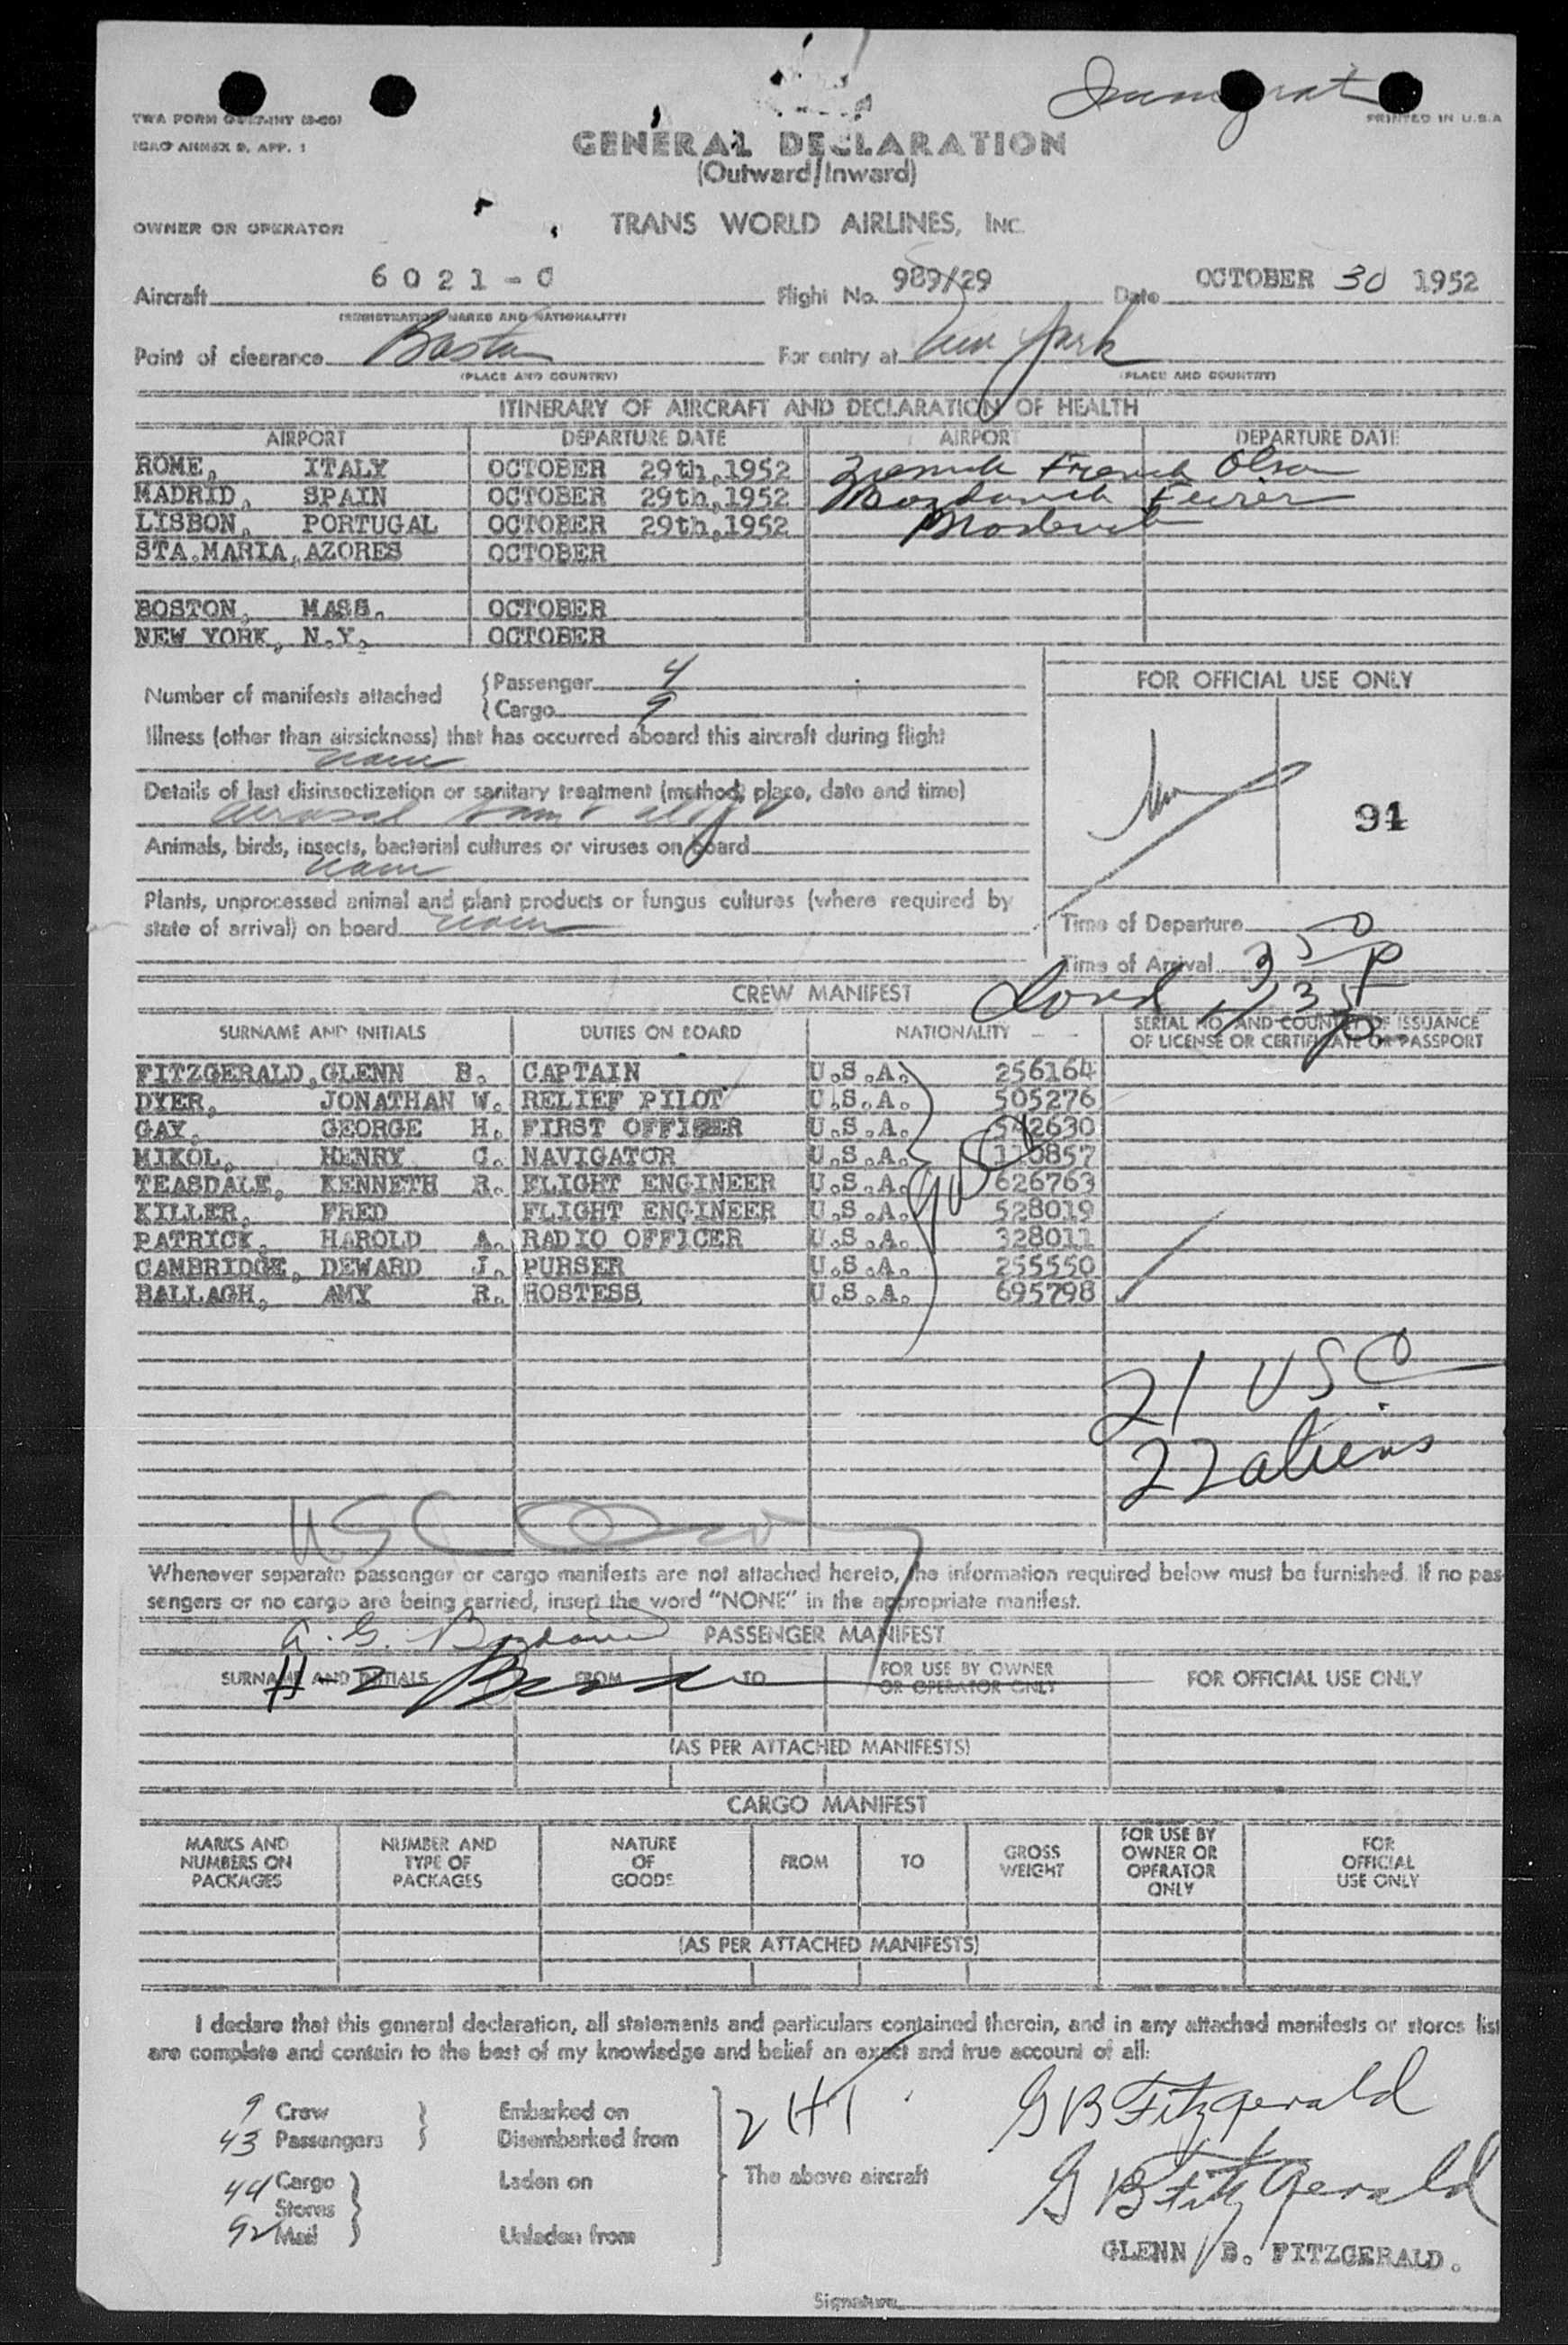 Immigrat
TWA FORM INT (8-50)
PRINTED IN U.S.A
ICAO ANNEX 9, APP. 1
GENERAL DECLARATION
(Outward/Inward)
OWNER OR OPERATOR TRANS WORLD AIRLINES, INC.
Aircraft 6021-C Flight No. 989/29 Date OCTOBER 30 1952
(REGISTRATION MARKS AND NATIONALITY)
Point of clearance Boston For entry at New York
(PLACE AND COUNTRY) (PLACE AND COUNTRY)
ITINERARY OF AIRCRAFT AND DECLARATION OF HEALTH
AIRPORT DEPARTURE DATE AIRPORT DEPARTURE DATE
ROME, ITALY OCTOBER 29th,1952 French Olson
MADRID, SPAIN OCTOBER 29th,1952
LISBON, PORTUGAL OCTOBER 29th,1952
STA.MARIA, AZORES OCTOBER
BOSTON, MASS. OCTOBER
NEW YORK, N.Y. OCTOBER
Number of manifests attached {Passenger 4
{Cargo 9
FOR OFFICIAL USE ONLY
Illness (other than airsickness) that has occurred aboard this aircraft during flight
none
Details of last disinsectization or sanitary treatment (method, place, date and time)
aerosol
91
Animals, birds, insects, bacterial cultures or viruses on board
none
Plants, unprocessed animal and plant products or fungus cultures (where required by
state of arrival) on board none
Time of Departure
Time of Arrival 3 50 P
CREW MANIFEST
SURNAME AND INITIALS DUTIES ON BOARD NATIONALITY SERIAL NO. AND COUNTRY OF ISSUANCE
OF LICENSE OR CERTIFICATE OR PASSPORT
FITZGERALD,GLENN B. CAPTAIN U.S.A. 256164
DYER, JONATHAN W. RELIEF PILOT U.S.A. 505276
GAY, GEORGE H. FIRST OFFICER U.S.A. 542630
MIKOL, HENRY C. NAVIGATOR U.S.A. 110857
TEASDALE, KENNETH R. FLIGHT ENGINEER U.S.A. 626763
KILLER, FRED FLIGHT ENGINEER U.S.A. 528019
PATRICK, HAROLD A. RADIO OFFICER U.S.A. 328011
CAMBRIDGE, DEWARD J. PURSER U.S.A. 255550
BALLAGH, AMY R. HOSTESS U.S.A. 695798
21 USC
22 aliens
USC
Whenever separate passenger or cargo manifests are not attached hereto, the information required below must be furnished. If no pas-
sengers or no cargo are being carried, insert the word "NONE" in the appropriate manifest.
PASSENGER MANIFEST
SURNAME AND INITIALS FROM TO FOR USE BY OWNER
OR OPERATOR ONLY FOR OFFICIAL USE ONLY
(AS PER ATTACHED MANIFESTS)
CARGO MANIFEST
MARKS AND
NUMBERS ON
PACKAGES
NUMBER AND
TYPE OF
PACKAGES
NATURE
OF
GOODS
FROM
TO
GROSS
WEIGHT
FOR USE BY
OWNER OR
OPERATOR
ONLY
FOR
OFFICIAL
USE ONLY
(AS PER ATTACHED MANIFESTS)
I declare that this general declaration, all statements and particulars contained therein, and in any attached manifests or stores list
are complete and contain to the best of my knowledge and belief an exact and true account of all:
9 Crew Embarked on
43 Passengers Disembarked from
G B Fitzgerald
44 Cargo Laden on The above aircraft
Stores
G B Fitzgerald
92 Mail Unladen from
GLENN B. FITZGERALD.
Signature